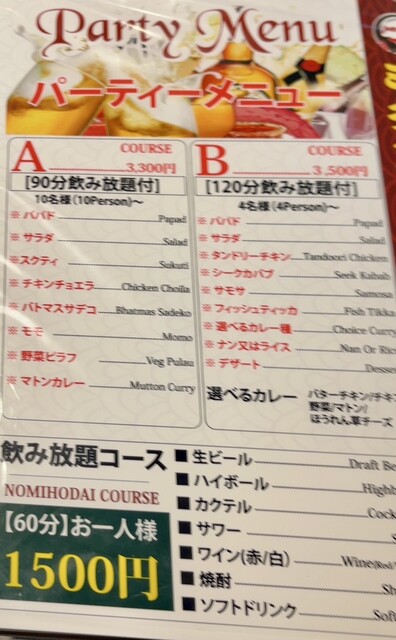 Party Menu
パーティーメニュー
A COURSE
3,300円
[90分飲み放題付]
10名様 (10Person)〜
※ パパド Papad
※ サラダ Salad
※スクティ Sukuti
※ チキンチョエラ Chicken Choila
※ バトマスサデコ Bhatmas Sadeko
※ モモ Momo
※ 野菜ピラフ Veg Pulau
※ マトンカレー Mutton Curry
B COURSE
3,500円
[120分飲み放題付]
4名様 (4Person)〜
※ パパド Papad
※ サラダ Salad
※ タンドリーチキン Tandoori Chicken
※ シークカバブ Seek Kabab
※ サモサ Samosa
※ フィッシュティッカ Fish Tikka
※ 選べるカレー種 Choice Curry
※ ナン又はライス Nan Or Rice
※ デザート Desse
選べるカレー バターチキン/チキ
野菜/マトン/
ほうれん草チーズ
飲み放題コース
NOMIHODAI COURSE
【60分】お一人様
1500円
■ 生ビール Draft Be
■ ハイボール Highb
■ カクテル Cock
■ サワー S
■ ワイン(赤/白) Wine(Red/
■ 焼酎 Sh
■ ソフトドリンク Soft